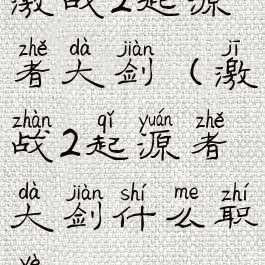 激战2起源
zhě dà jiàn jī
者大剑(激
zhàn qǐ yuán zhě
战2起源者
dà jiàn shí me zhí
大剑什么职
yè